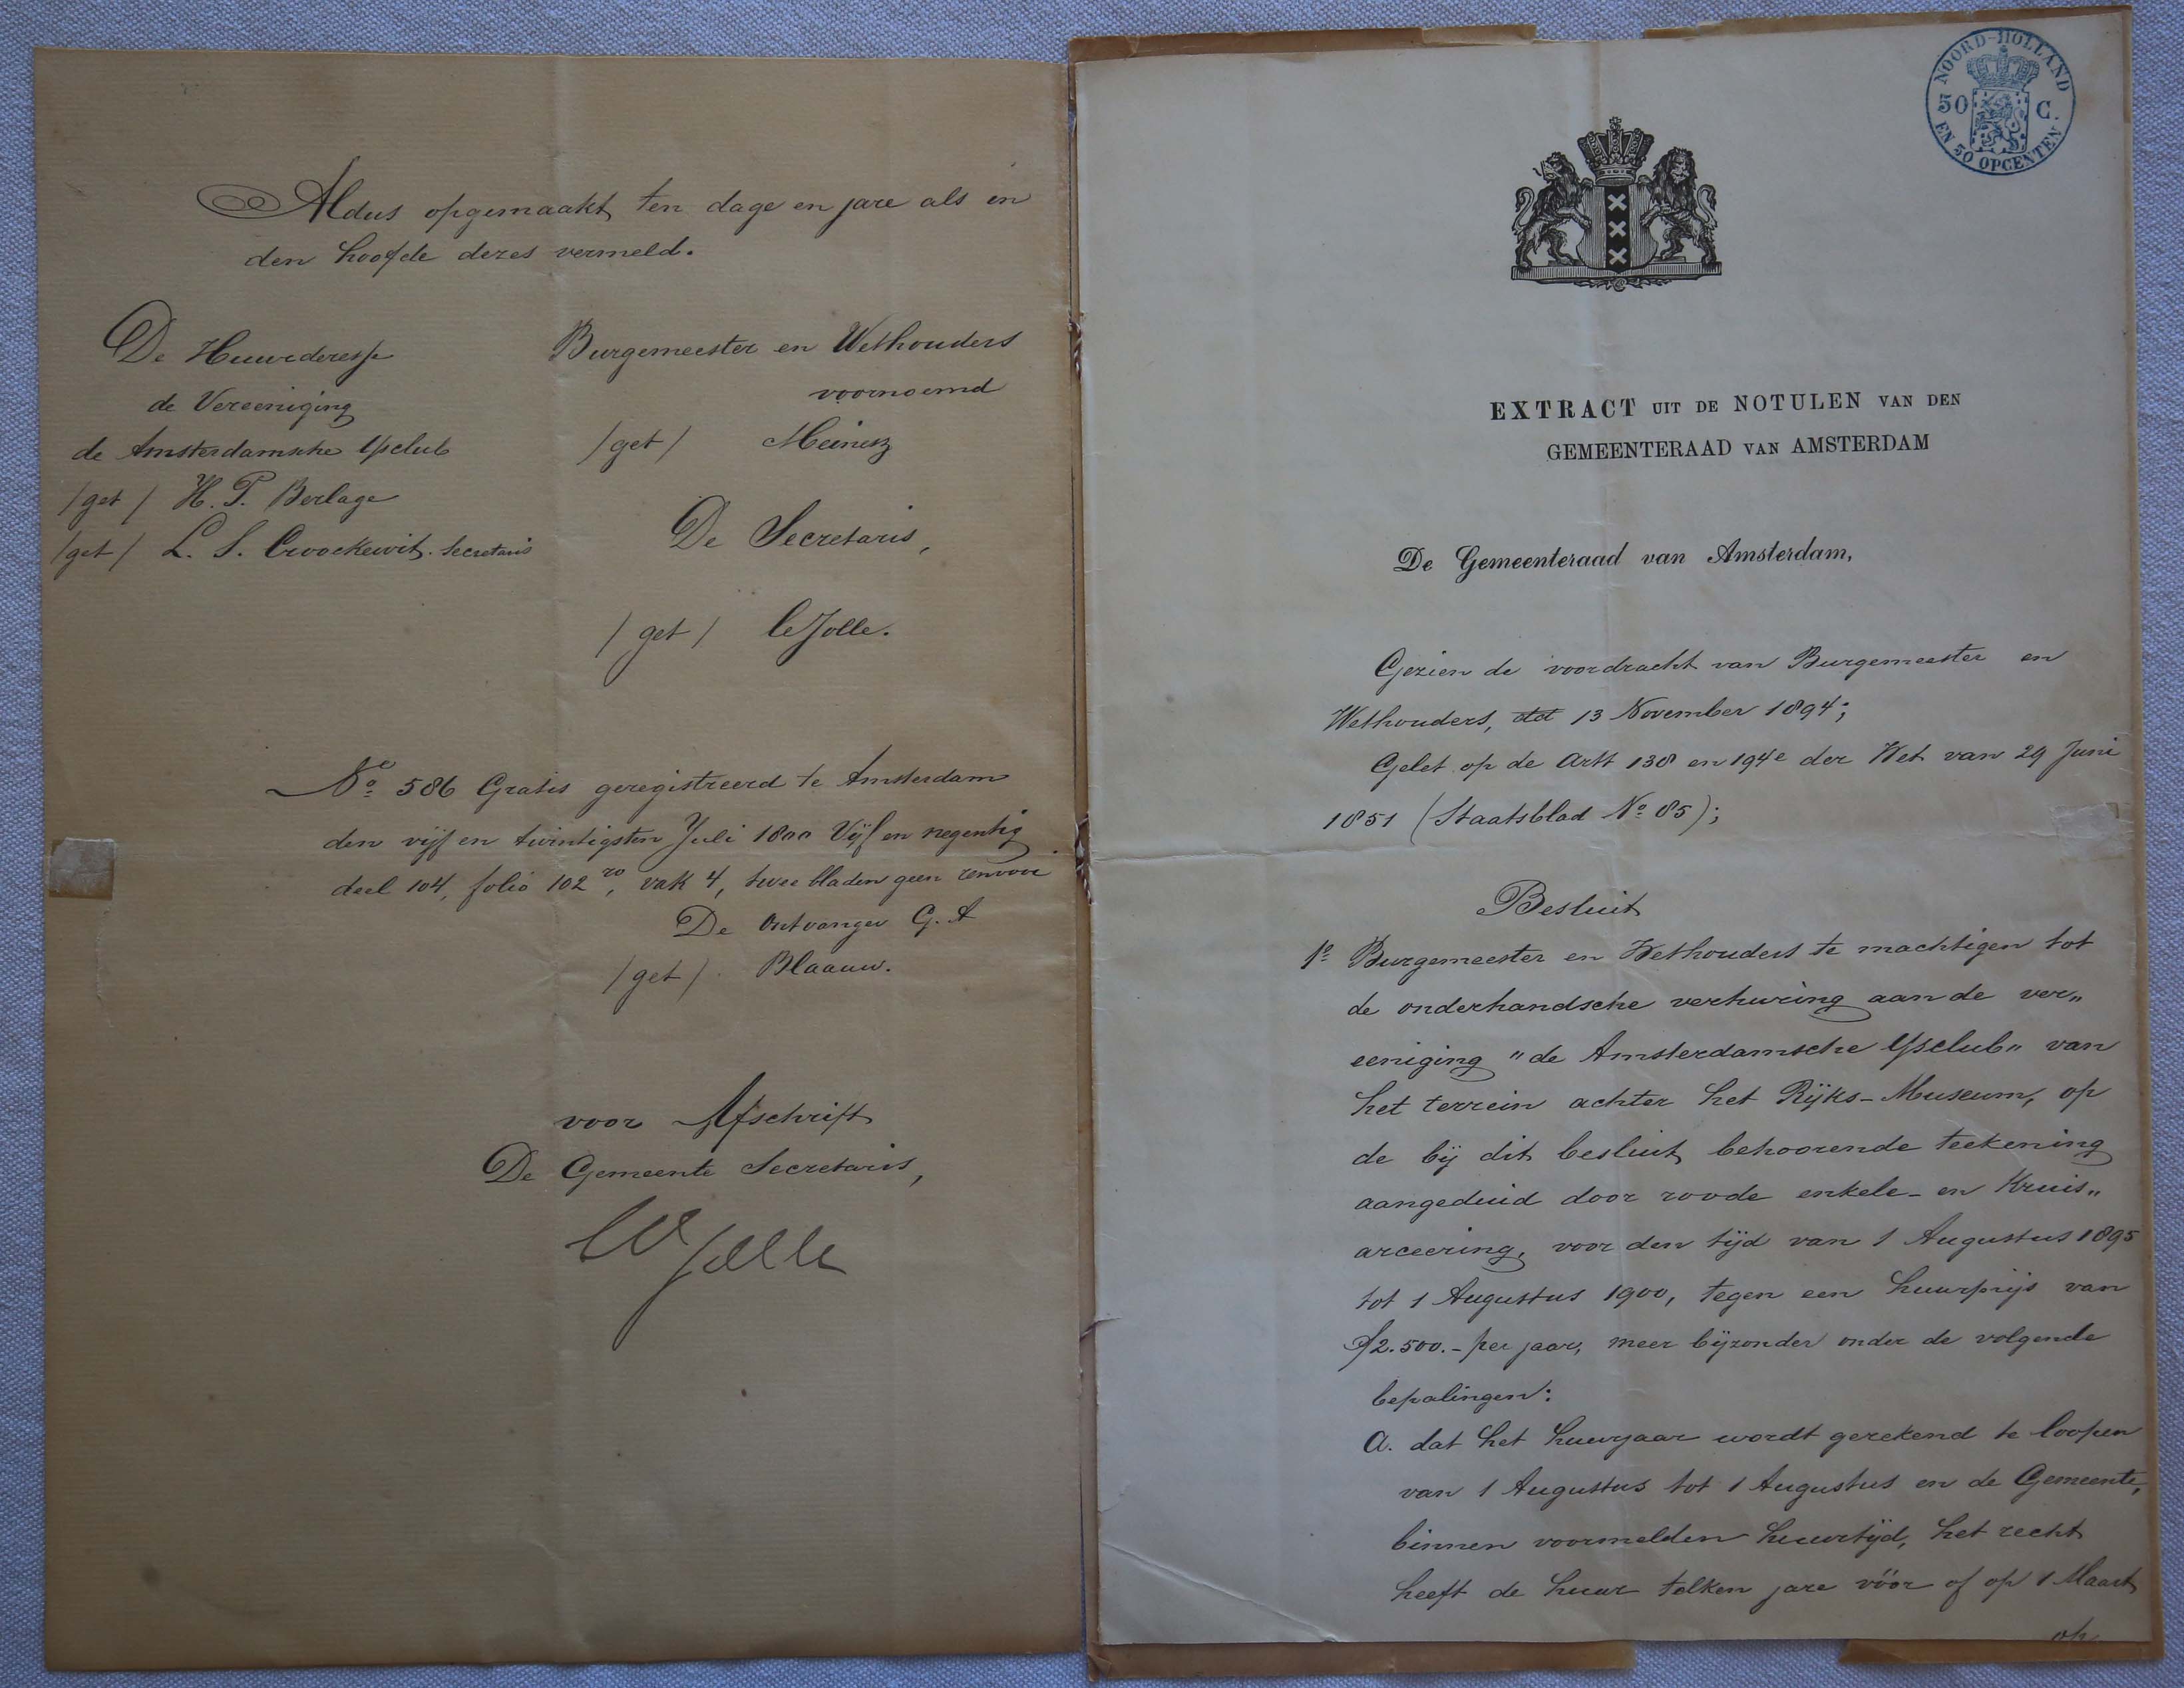 Aldus opgemaakt ten dage en jare als in
den hoofde dezes vermeld.
De Huurderesse
de Vereeniging
de Amsterdamsche IJsclub
/get/ H. P. Berlage
/get/ L. S. Croockewit. Secretaris
Burgemeester en Wethouders
voornoemd
/get/ Meinesz
De Secretaris,
/get/ le Jolle.
No 586 Gratis geregistreerd te Amsterdam
den vijf en twintigsten Juli 1800 Vijf en negentig
deel 104, folio 102 ro, vak 4, twee bladen geen renvooi
De Ontvanger G. A
/get/ Blaauw.
voor Afschrift
De Gemeente Secretaris,
le Jolle
NOORD-HOLLAND
50 C.
EN 50 OPCENTEN.
EXTRACT UIT DE NOTULEN VAN DEN
GEMEENTERAAD VAN AMSTERDAM
De Gemeenteraad van Amsterdam,
Gezien de voordracht van Burgemeester en
Wethouders, dd 13 November 1894;
Gelet op de Artt 138 en 194e der Wet van 29 Juni
1851 (Staatsblad No 85);
Besluit
1o Burgemeester en Wethouders te machtigen tot
de onderhandsche verhuring aan de ver„
eeniging "de Amsterdamsche IJsclub" van
het terrein achter het Rijks-Museum, op
de bij dit besluit behoorende teekening
aangeduid door roode enkele- en Kruis„
arceering, voor den tijd van 1 Augustus 1895
tot 1 Augustus 1900, tegen een huurprijs van
ƒ2.500.- per jaar, meer bijzonder onder de volgende
bepalingen:
a. dat het huurjaar wordt gerekend te loopen
van 1 Augustus tot 1 Augustus en de Gemeente,
binnen voormelden huurtijd, het recht
heeft de huur telken jare vóór of op 1 Maart
op